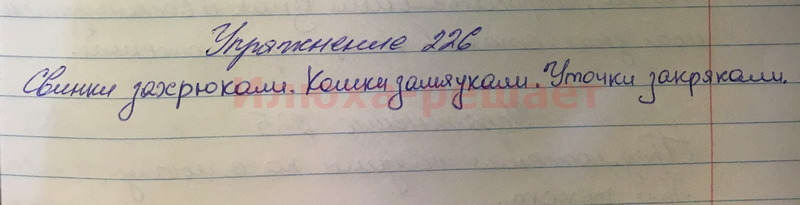 Упражнение 226
Свинки захрюкали. Кошки замяукали. Уточки закрякали.
Илюха-решает